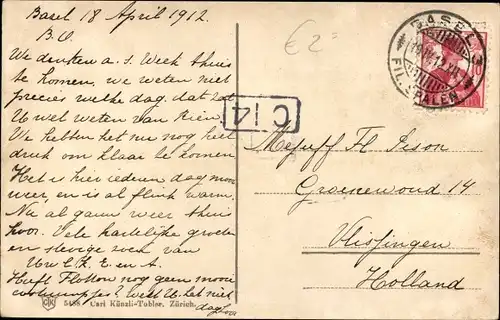 Basel 18 April 1912.
B.O.
We denken a.s. Week thuis
te komen, we weten niet
precies welke dag, dat zal
U wel weten van Rien.
We hebben het nu nog heel
druk om klaar te komen
Het is hier iederen dag mooi
weer, en is al flink warm.
Nu al gauw weer thuis
hoor. Vele hartelijke groeten
en stevige zoen van
Heeft Flotton nog geen mooie
? Weet U het niet
BASEL 3
FIL. SPALEN
€ 2=
C 14
Mejuff Fl
Groenewoud 14
Vlissingen
Holland
5488 Carl Künzli-Tobler, Zürich.